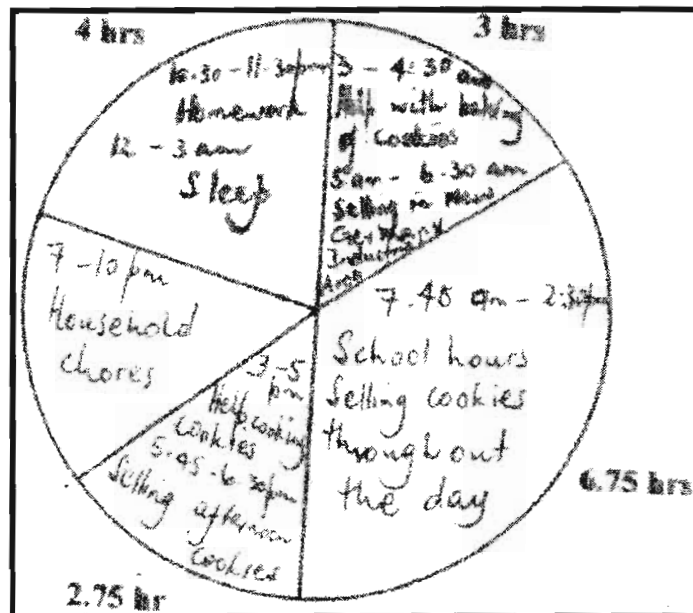 4 hrs
3 hrs
10.30 - 11.30pm
Homework
12 - 3 am
Sleep
3 - 4:30 am
Help with baking
of cookies
5 am - 6.30 am
Selling in New
Germany
Industrial
Area
7.45 am - 2:30pm
School hours
Selling cookies
throughout
the day
6.75 hrs
3 - 5
pm
Help cooking
cookies
5.45 - 6.30pm
Selling afternoon
cookies
2.75 hr
7 - 10 pm
Household
chores